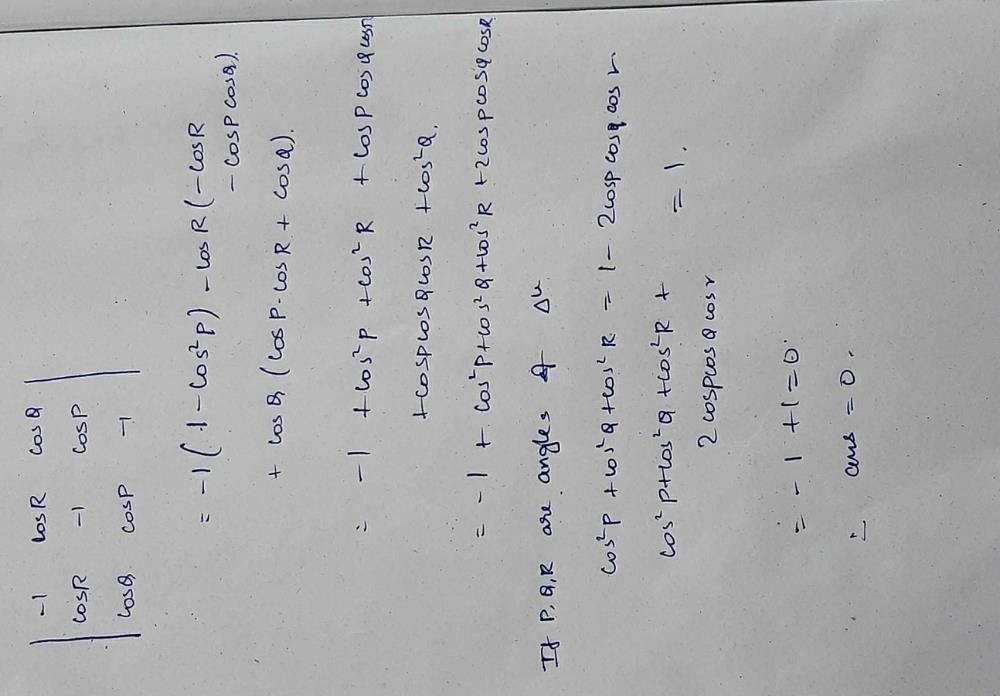 | -1 cosR cosQ |
| cosR -1 cosP |
| cosQ cosP -1 |
= -1(1 - cos²P) - cosR(-cosR
- cosP cosQ)
+ cosQ (cosP·cosR + cosQ).
= -1 + cos²P + cos²R + cosP cosQ cosR
+ cosP cosQ cosR + cos²Q.
= -1 + cos²P + cos²Q + cos²R + 2cosP cosQ cosR
If P,Q,R are angles of Δle
cos²P + cos²Q + cos²R = 1 - 2cosp cosq cos r
cos²P + cos²Q + cos²R +
2cosPcosQ cos r = 1.
= -1 + 1 = 0
∴ ans = 0.